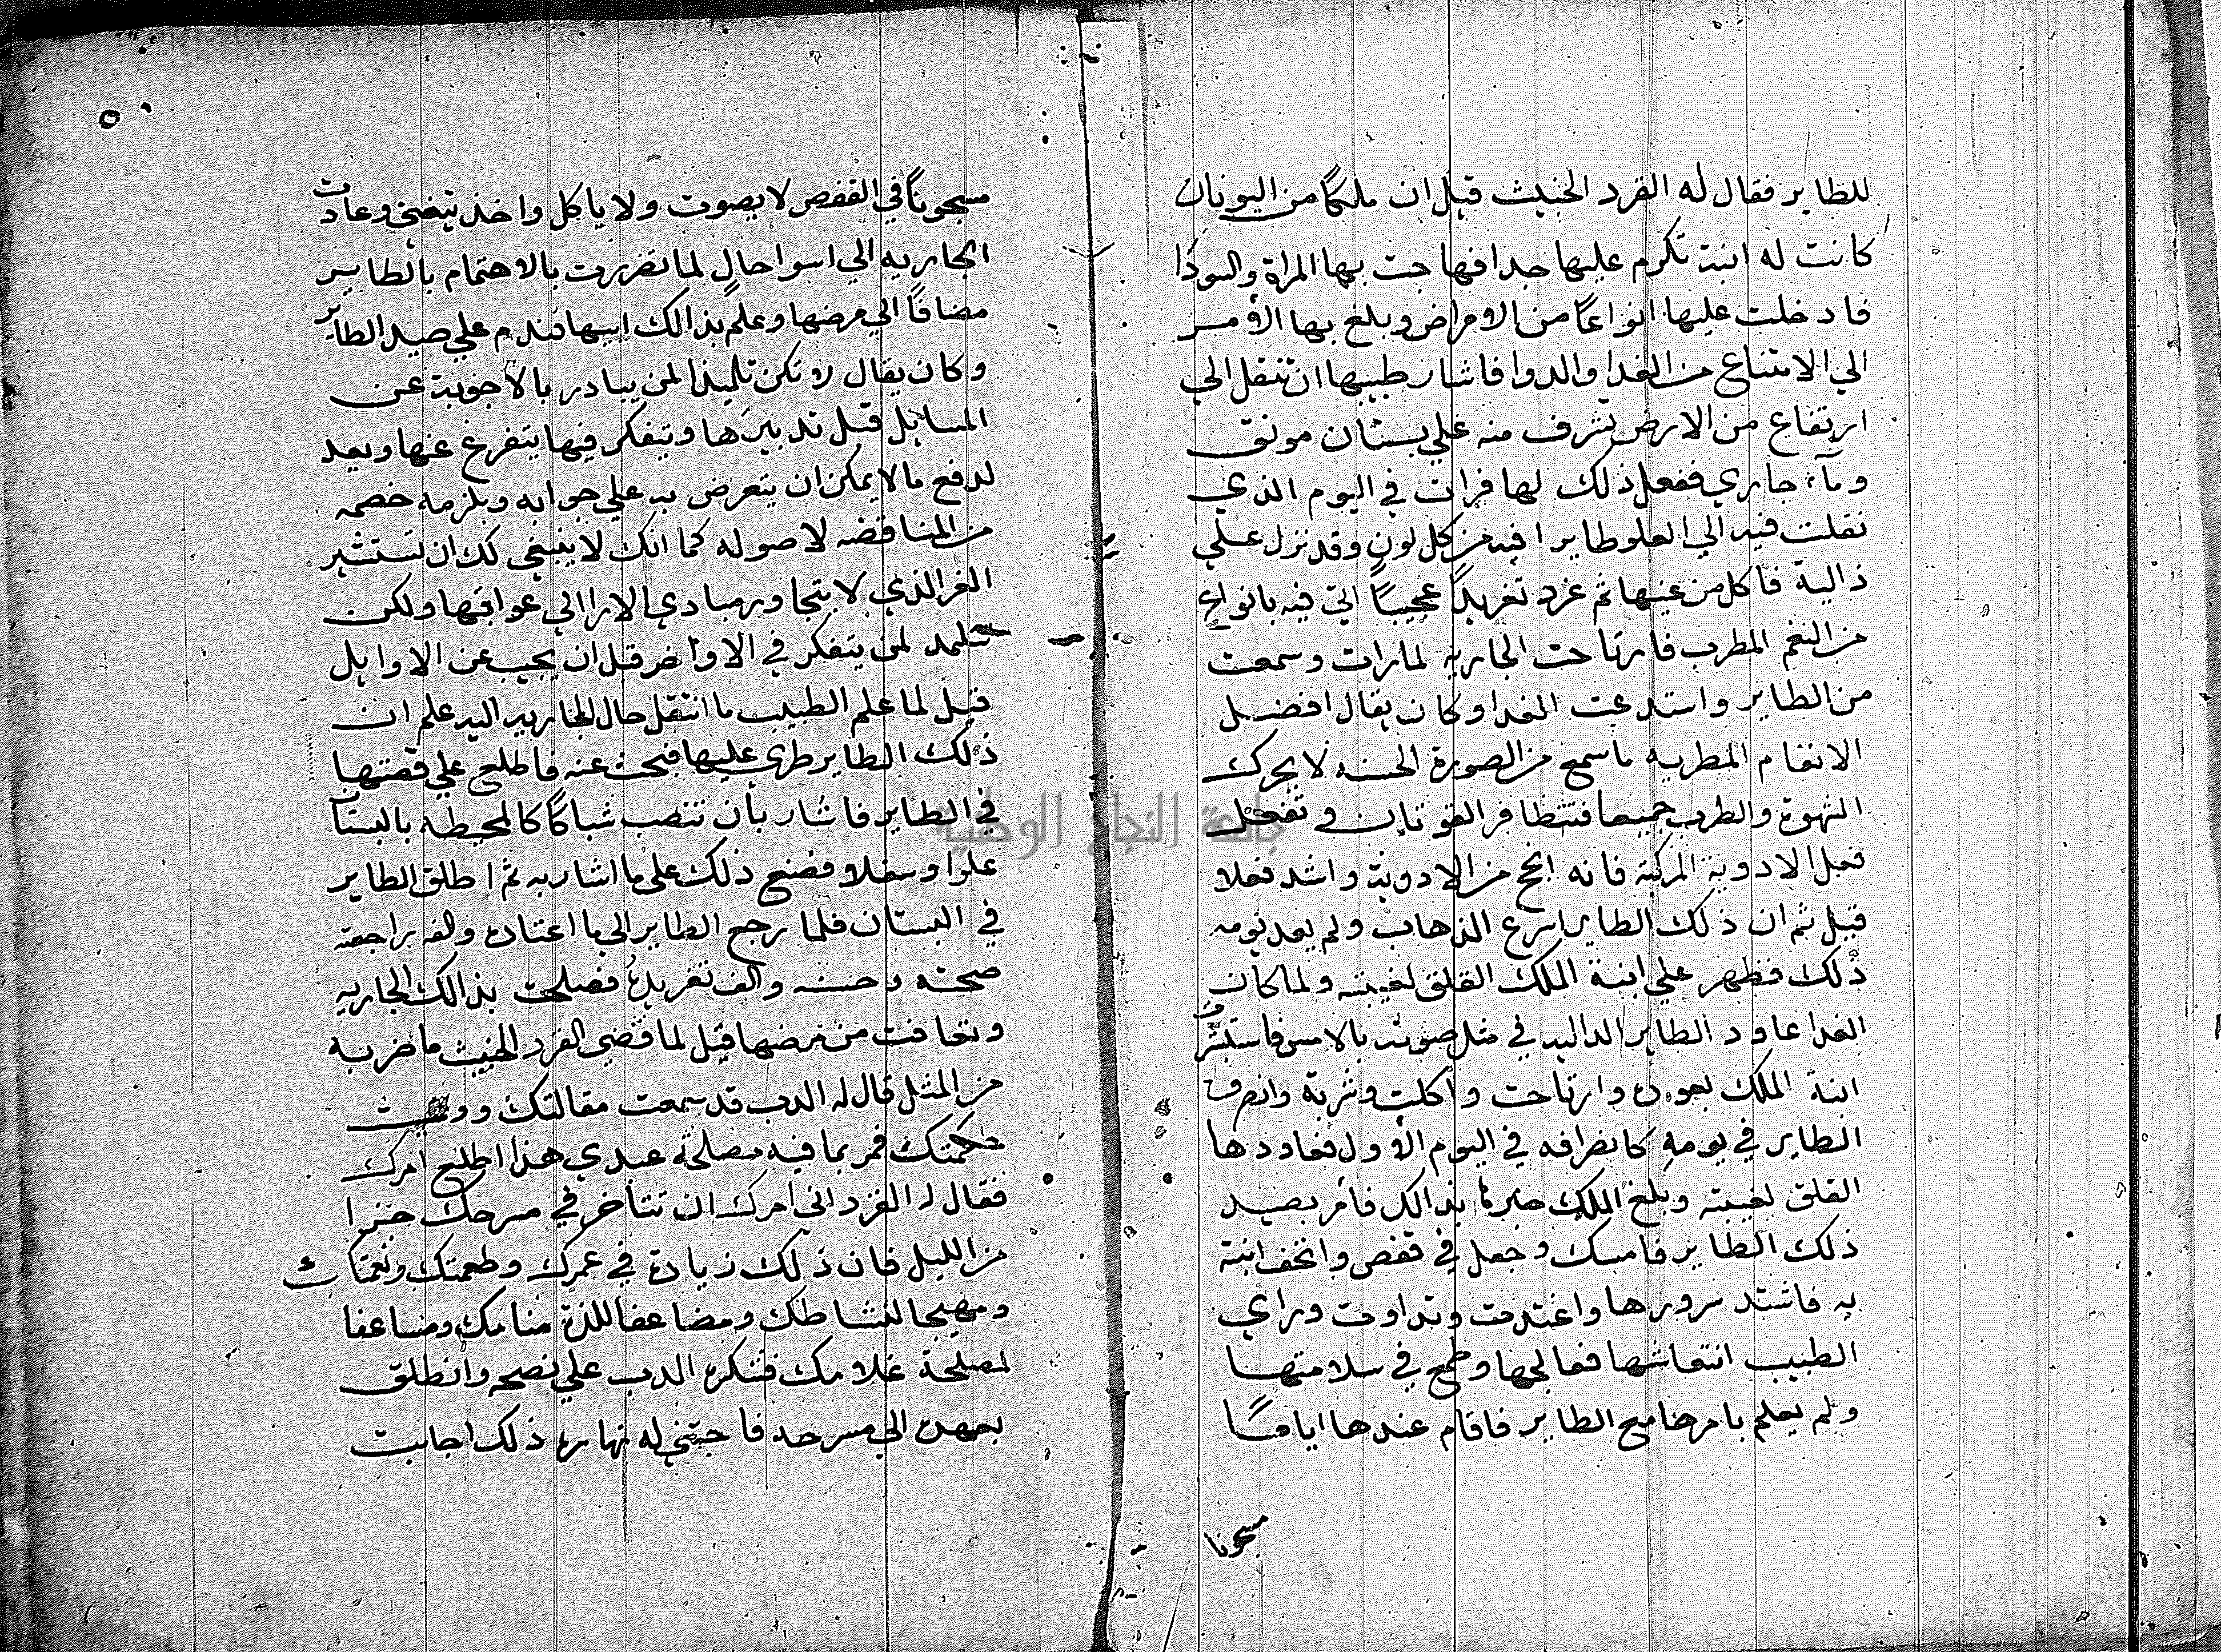 للطاير فقال له القرد الخبيث قيل ان ملكاً من اليونان
كانت له ابنت تكرم عليها جدا فهاجت بها المراة والسودا
فادخلت عليها انواعاً من الامراض وبلغ بها الامر
الي الامتناع من الغدا والدوا فاشار طبيبها ان تنتقل الي
ارتفاع من الارض تشرف منه علي بستان مونق
وماء جاري ففعل ذلك لها فرات في اليوم الذي
نقلت فيه الي العلو طايرا فيه من كل لون وقد نزل علي
دالية فاكل من عنبها ثم غرد تغريداً عجيباً اتي فيه بانواع
من النغم المطرب فارتاحت الجاريه لما رات وسمعت
من الطاير واستدعت الغدا وكان يقال افضل
الانغام المطربه ما سمع من الصورة الحسنه لا يحرك
الشهوة والطرب جميعا فتتظافر القوتان في تفعل
فعل الادوية المركبة فانه انجح من الادوية واشد فعلا
قيل ثم ان ذلك الطاير اسرع الذهاب ولم يعد يومه
ذلك فظهر علي ابنة الملك القلق لغيبته ولما كان
الغدا عاود الطاير الداليه في مثل صوته بالامس فاستبشرت
ابنة الملك بعوده وارتاحت واكلت وشربة وانصرف
الطاير في يومه كانصرافه في اليوم الاول فعاودها
القلق لغيبته وبلغ الملك خبرها بذالك فامر بصيد
ذلك الطاير فامسك وجعل في قفص واتحف ابنته
به فاشتد سرورها واغتدت وتداوت وراي
الطبيب انتعاشها فعالجها وطمع في سلامتها
ولم يعلم بامرها مع الطاير فاقام عندها اياماً
مسجونا
٥٠
مسجوناً في القفص لا يصوت ولا ياكل واخذ يتغنى وعادت
الجاريه الي اسوا حالٍ لما تضررت بالاهتمام بالطاير
مضافاً الي مرضها وعلم بذالك ابيها فندم علي صيد الطاير
وكان يقال لا تكن تلميذا لمن يبادر بالاجوبة عن
المسايل قبل تدبيرها ويتفكر فيها يتفرغ عنها ويعد
لدفع ما لا يمكن ان يتعرض به علي جوابه ويلزمه خصمه
من المناقضه لاصوله كما انك لا ينبغي لك ان تستشير
الغر الذي لا يتجاوز مبادي الارا الي عواقبها ولكن
تتلمد لمن يتفكر في الاواخر قبل ان يجيب عن الاوايل
قيل لما علم الطبيب ما انتقل حال الجاريه اليه علم ان
ذلك الطاير طري عليها فبحث عنه فاطلع علي قصتها
في الطاير فاشار بأن تنصب شباكاً كالمحيطه بالبستان
علوا وسفلا فصنع ذلك علي ما اشار به ثم اطلق الطاير
في البستان فلما رجع الطاير الي ما اعتاده والفه راجعته
صحته وحسنه والف تغريده فصلحت بذالك الجاريه
وتعافت من مرضها قيل لما قضي القرد الخبيث ما ضربه
من المثل قال له الدب قد سمعت مقالتك
حكمتك فمر بما فيه مصلحة عبدي هذا اطلع امرك
فقال له القرد اني امرك ان تتاخر في مسرحك جزا
من الليل فان ذلك زيادة في عمرك وطعمتك ونعمتك
ومهيجا لنشاطك ومضاعفا للذة منامك ومساعفا
لمصلحة غلامك فشكره الدب علي نصحه وانطلق
بعهده الي مسرحه فاجتني له نهاره ذلك اجانبت